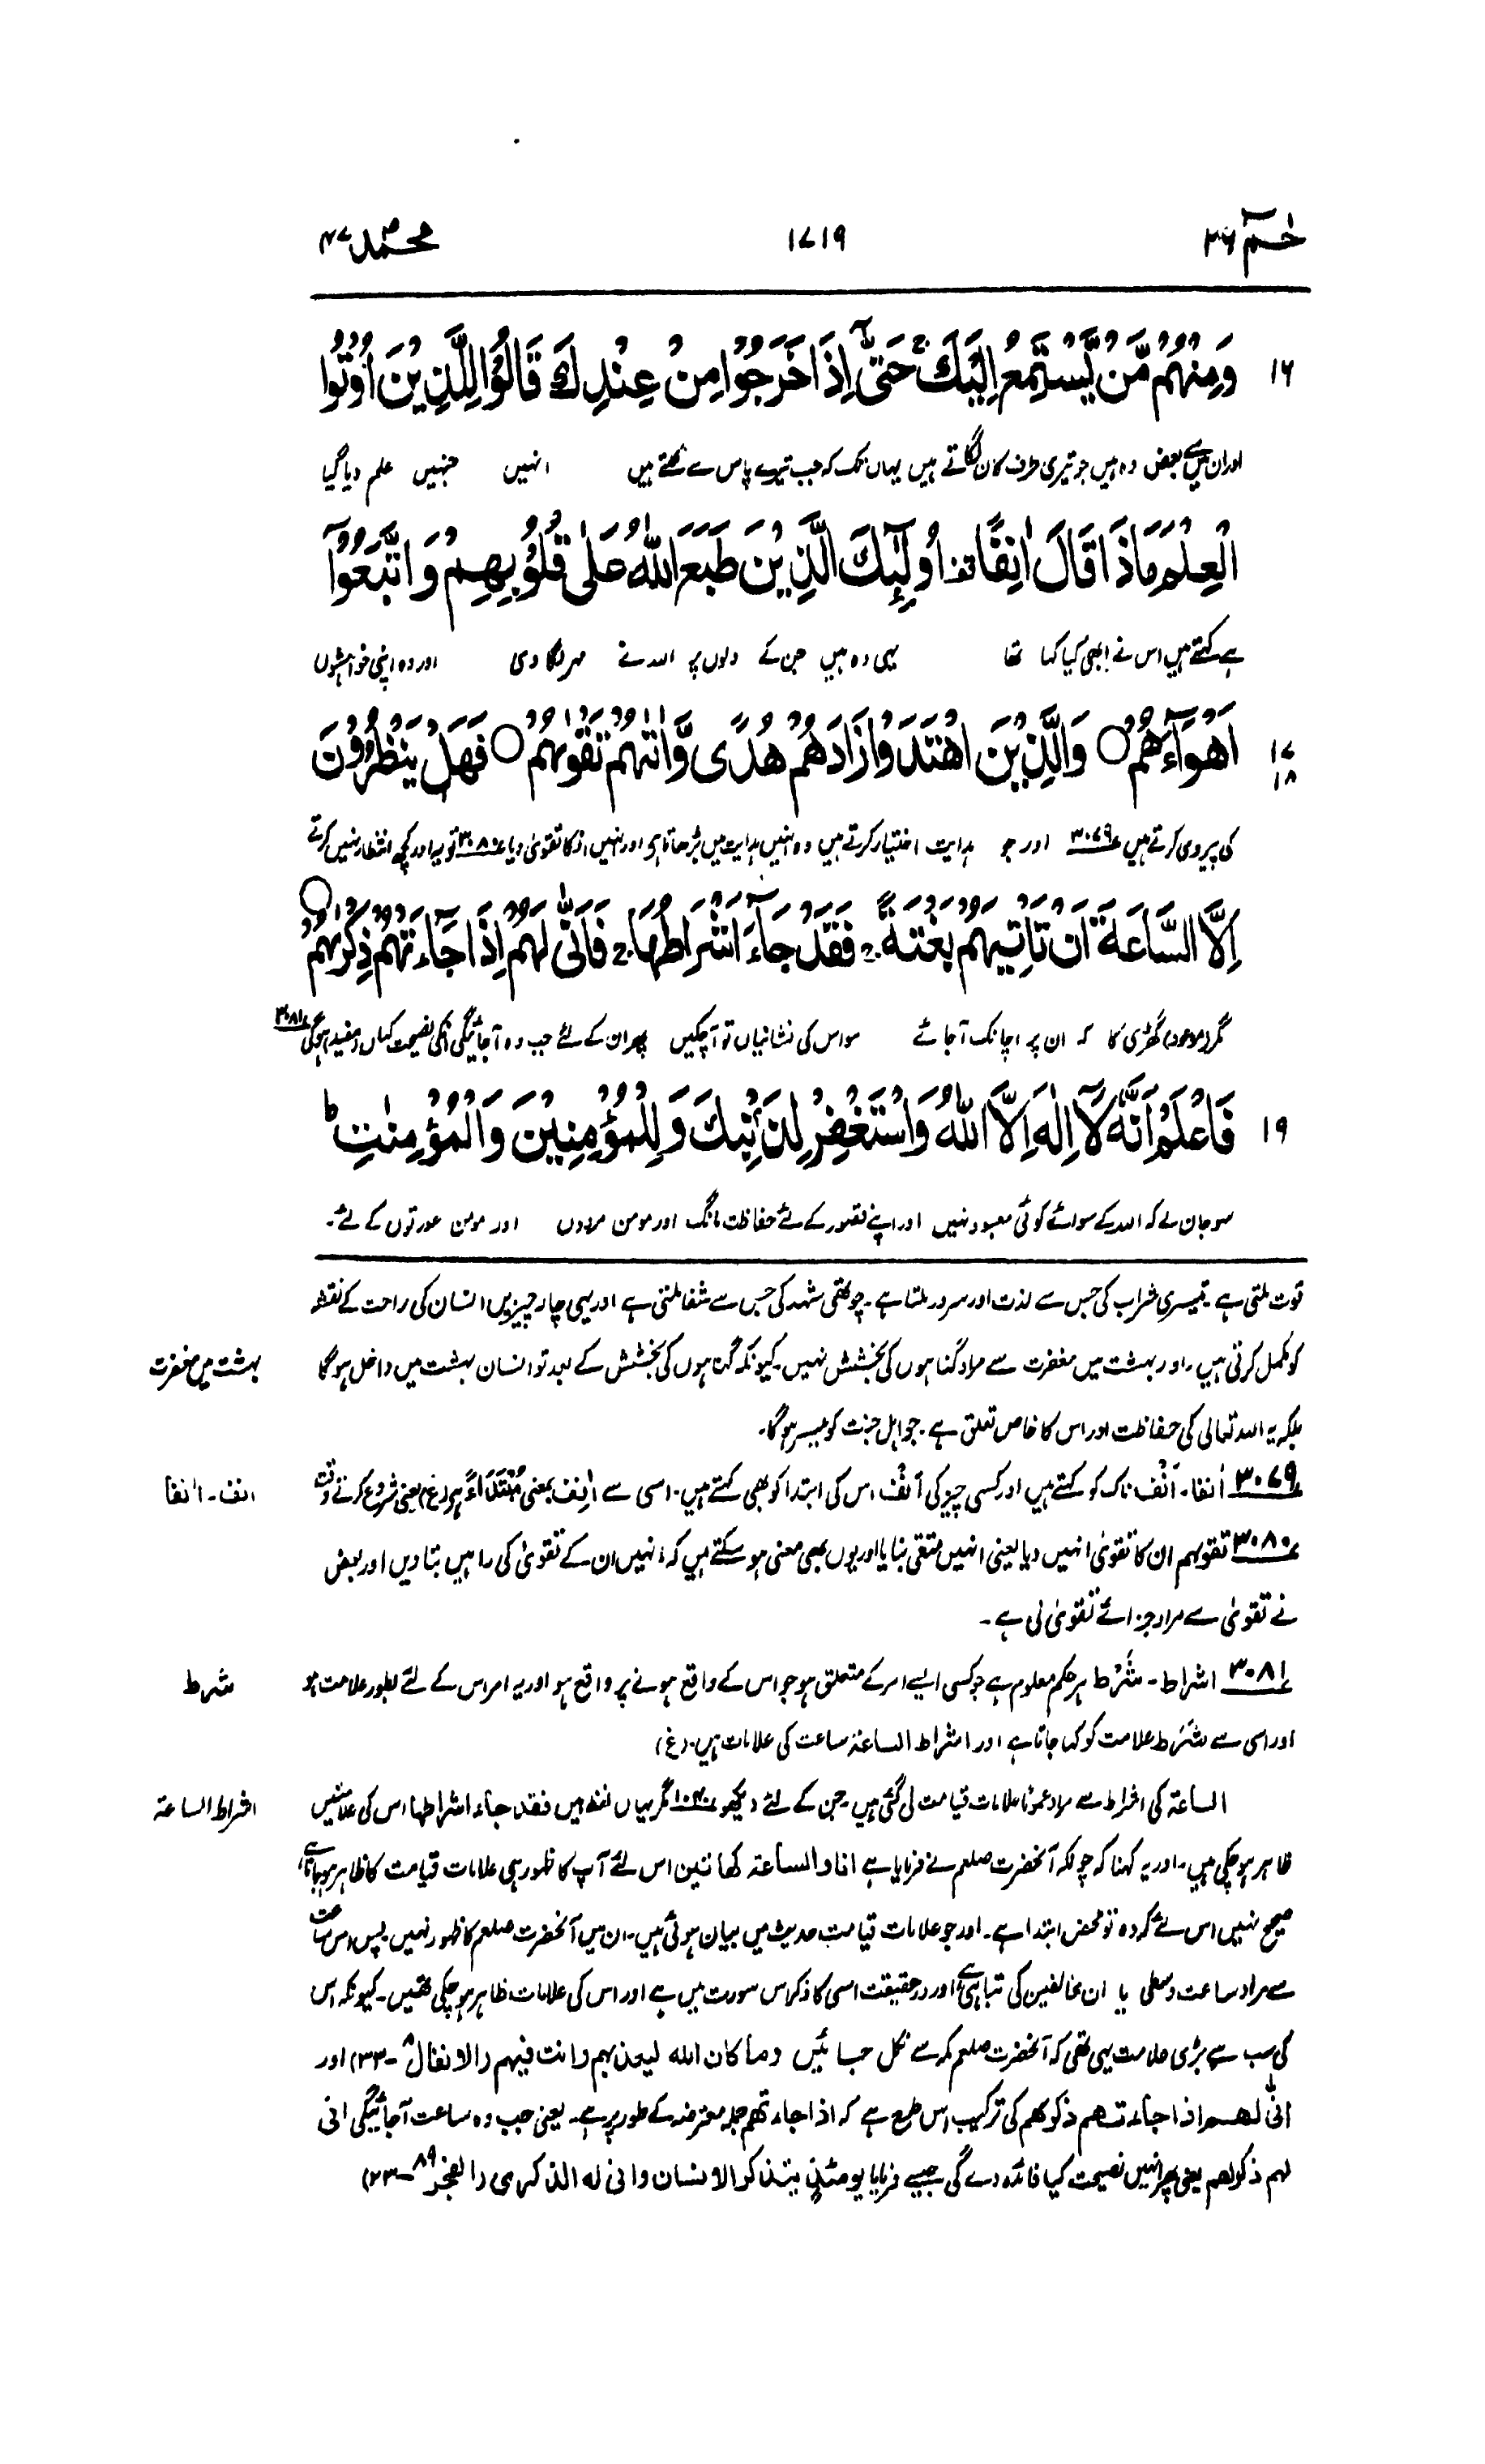 حٰمٓ ۲۶
۱۷۱۹
محمد ۴۷
۱۶
وَمِنْهُمْ مَّنْ يَّسْتَمِعُ اِلَيْكَ ۚ حَتّٰۤى اِذَا خَرَجُوْا مِنْ عِنْدِكَ قَالُوْا لِلَّذِيْنَ اُوْتُوا
اور ان میں سے بعض وہ ہیں جو تیری طرف کان لگاتے ہیں یہاں تک کہ جب تیرے پاس سے نکلتے ہیں انہیں جنہیں علم دیا گیا
الْعِلْمَ مَاذَا قَالَ اٰنِفًا ۫ اُولٰٓئِكَ الَّذِيْنَ طَبَعَ اللّٰهُ عَلٰى قُلُوْبِهِمْ وَاتَّبَعُوْٓا
ہے کہتے ہیں اس نے ابھی کیا کہا تھا یہی وہ ہیں جن کے دلوں پر اللہ نے مہر لگا دی اور وہ اپنی خواہشوں
۱۷
۱۸
اَهْوَآءَهُمْ ○ وَالَّذِيْنَ اهْتَدَوْا زَادَهُمْ هُدًى وَّاٰتٰىهُمْ تَقْوٰىهُمْ ○ فَهَلْ يَنْظُرُوْنَ
کی پیروی کرتے ہیں ۳۰۷۹ اور جو ہدایت اختیار کرتے ہیں وہ انہیں ہدایت میں بڑھاتا ہے اور انہیں انکا تقویٰ دیا ۳۰۸۰ تو یہ اور کچھ انتظار نہیں کرتے
اِلَّا السَّاعَةَ اَنْ تَاْتِيَهُمْ بَغْتَةً ۚ فَقَدْ جَآءَ اَشْرَاطُهَا ۚ فَاَنّٰى لَهُمْ اِذَا جَآءَتْهُمْ ذِكْرٰىهُمْ ○
مگر (موعود) گھڑی کا کہ ان پر اچانک آجائے سو اس کی نشانیاں تو آچکیں پھر ان کے لئے جب وہ آجائیگی انکی نصیحت کہاں (مفید) ہوگی ۳۰۸۱
۱۹
فَاعْلَمْ اَنَّهٗ لَآ اِلٰهَ اِلَّا اللّٰهُ وَاسْتَغْفِرْ لِذَنْۢبِكَ وَلِلْمُؤْمِنِيْنَ وَالْمُؤْمِنٰتِ ؕ
سو جان لے کہ اللہ کے سوائے کوئی معبود نہیں اور اپنے قصور کے لئے حفاظت مانگ اور مومن مردوں اور مومن عورتوں کے لئے۔
قوت ملتی ہے۔ تیسری شراب کی جس سے لذت اور سرور ملتا ہے۔ چوتھی شہد کی جس سے شفا ملتی ہے اور یہی چار چیزیں انسان کی راحت کے نقشہ
کو مکمل کرتی ہیں۔ اور بہشت میں مغفرت سے مراد گناہوں کی بخشش نہیں۔ کیونکہ گناہوں کی بخشش کے بعد تو انسان بہشت میں داخل ہوگا
بہشت میں مغفرت
بلکہ یہ اللہ تعالیٰ کی حفاظت اور اس کا خاص تعلق ہے۔ جو اہل جنت کو میسر ہوگا۔
۳۰۷۹ اٰنفا۔ اَنْف ناک کو کہتے ہیں اور کسی چیز کی اَنْف اس کی ابتدا کو بھی کہتے ہیں۔ اسی سے اٰنِف بمعنی مُبْتَدَاً ہے (غ) یعنی شروع کرتے وقت
انف۔ اٰنفا
۳۰۸۰ تقوٰىهم ان کا تقویٰ انہیں دیا یعنی انہیں متقی بنایا اور یوں بھی معنی ہو سکتے ہیں کہ انہیں ان کے تقویٰ کی راہیں بتا دیں اور بعض
نے تقویٰ سے مراد جزائے تقویٰ لی ہے۔
۳۰۸۱ اشراط۔ شَرْط ہر حکم معلوم ہے جو کسی ایسے امر کے متعلق ہو جو اس کے واقع ہونے پر واقع ہو اور یہ امر اس کے لئے بطور علامت ہو
شرط
اور اسی سے شَرَط علامت کو کہا جاتا ہے اور اشراط الساعۃ ساعت کی علامات ہیں۔ (غ)
الساعۃ کی اشراط سے مراد عموماً علامات قیامت لی گئی ہیں۔ جن کے لئے دیکھو مگر یہاں لفظ ہیں فقد جاء اشراطها اس کی علامتیں
اشراط الساعۃ
ظاہر ہو چکی ہیں۔ اور یہ کہنا کہ چونکہ آنحضرت صلعم نے فرمایا ہے انا والساعة کهاتین اس لئے آپ کا ظہور ہی علامات قیامت کا ظاہر ہو جانا ہے،
صحیح نہیں اس لئے کہ وہ تو محض ابتدا ہے۔ اور جو علامات قیامت حدیث میں بیان ہوئی ہیں۔ ان میں آنحضرت صلعم کا ظہور نہیں۔ پس اس ساعت
سے مراد ساعت وسطی یا ان مخالفین کی تباہی ہے اور درحقیقت اسی کا ذکر اس سورت میں ہے اور اس کی علامات ظاہر ہو چکی تھیں۔ کیونکہ اس
کی سب سے بڑی علامت یہی تھی کہ آنحضرت صلعم مکہ سے نکل جائیں وما کان الله لیعذبهم وانت فیهم (الانفال ۸-۳۳) اور
انّٰی لهم اذا جاءتهم ذکرٰهم کی ترکیب اس طرح ہے کہ اذا جاءتهم جملہ معترضہ کے طور پر ہے۔ یعنی جب وہ ساعت آجائیگی انی
لهم ذکرٰهم یعنی پھر انہیں نصیحت کیا فائدہ دے گی جیسے فرمایا یومئذ یتذکر الانسان وانی له الذکری (الفجر ۸۹-۲۳)